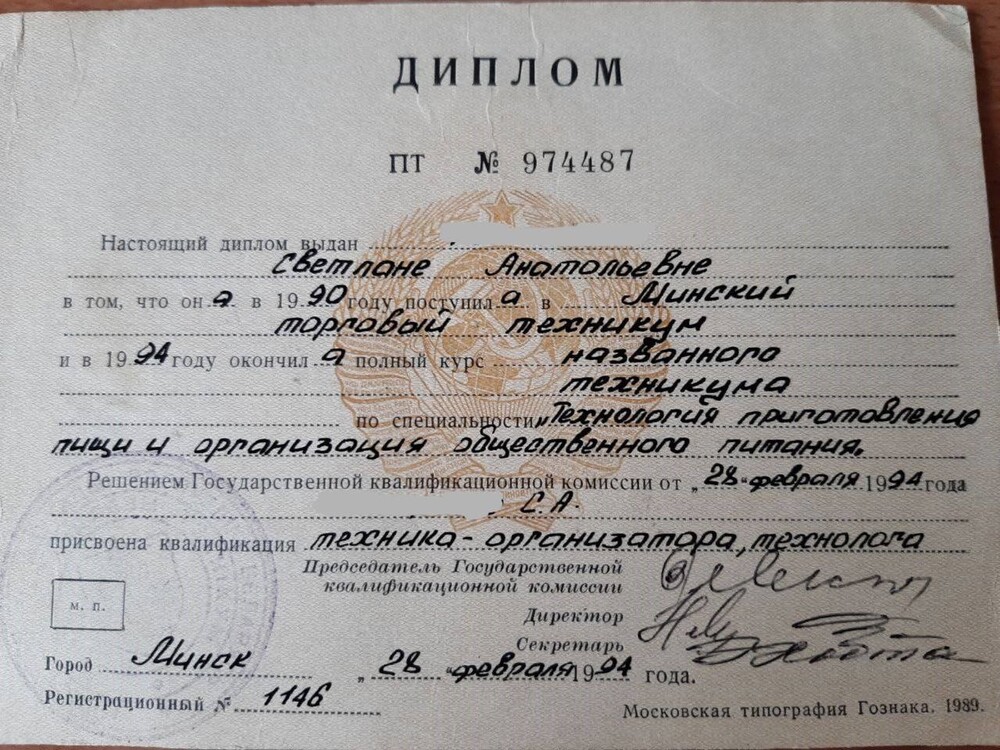 ДИПЛОМ
ПТ № 974487
Настоящий диплом выдан
Светлане Анатольевне
в том, что он а в 1990 году поступил а в Минский
торговый техникум
и в 1994 году окончил а полный курс названного
техникума
по специальности „Технология приготовления
пищи и организация общественного питания.
Решением Государственной квалификационной комиссии от „28 “ февраля 1994 года
С.А.
присвоена квалификация техника-организатора, технолога
Председатель Государственной
квалификационной комиссии
Директор
Секретарь
м. п.
Город Минск „ 28 “ февраля 1994 года.
Регистрационный № 1146
Московская типография Гознака. 1989.